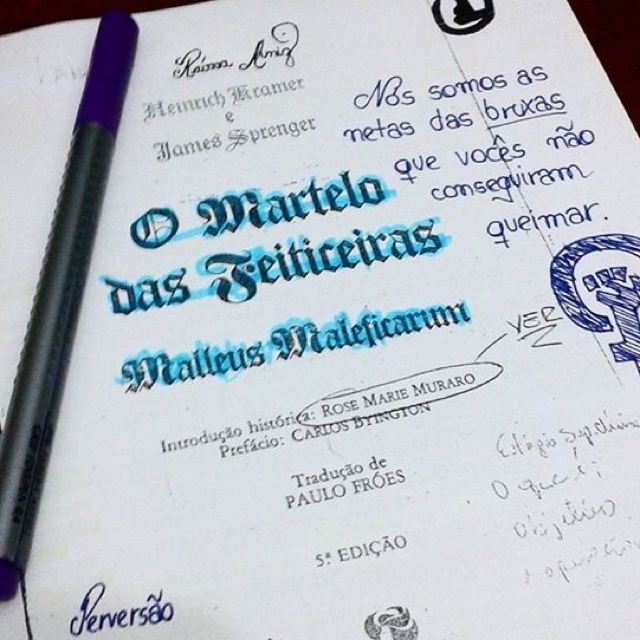 Heinrich Kramer
e
James Sprenger
Nós somos as
netas das bruxas
que vocês não
conseguiram
queimar.
O Martelo
das Feiticeiras
Malleus Maleficarum
VER
Introdução histórica: ROSE MARIE MURARO
Prefácio: CARLOS BYINGTON
Tradução de
PAULO FRÓES
5ª EDIÇÃO
O que é;
objetivo
Perversão